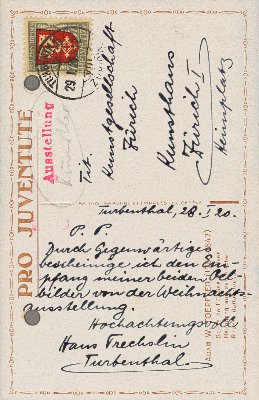 Ausstellung
Tit.
Kunstgesellschaft
Zürich
Kunsthaus
Zürich I
Heimplatz
PRO JUVENTUTE
Turbenthal, 28. I. 20.
P. P.
Durch Gegenwärtiges
bescheinige ich den Em-
pfang meiner beiden Oel-
bilder von der Weihnachts-
ausstellung.
Hochachtungsvoll
Hans Trechslin
Turbenthal.